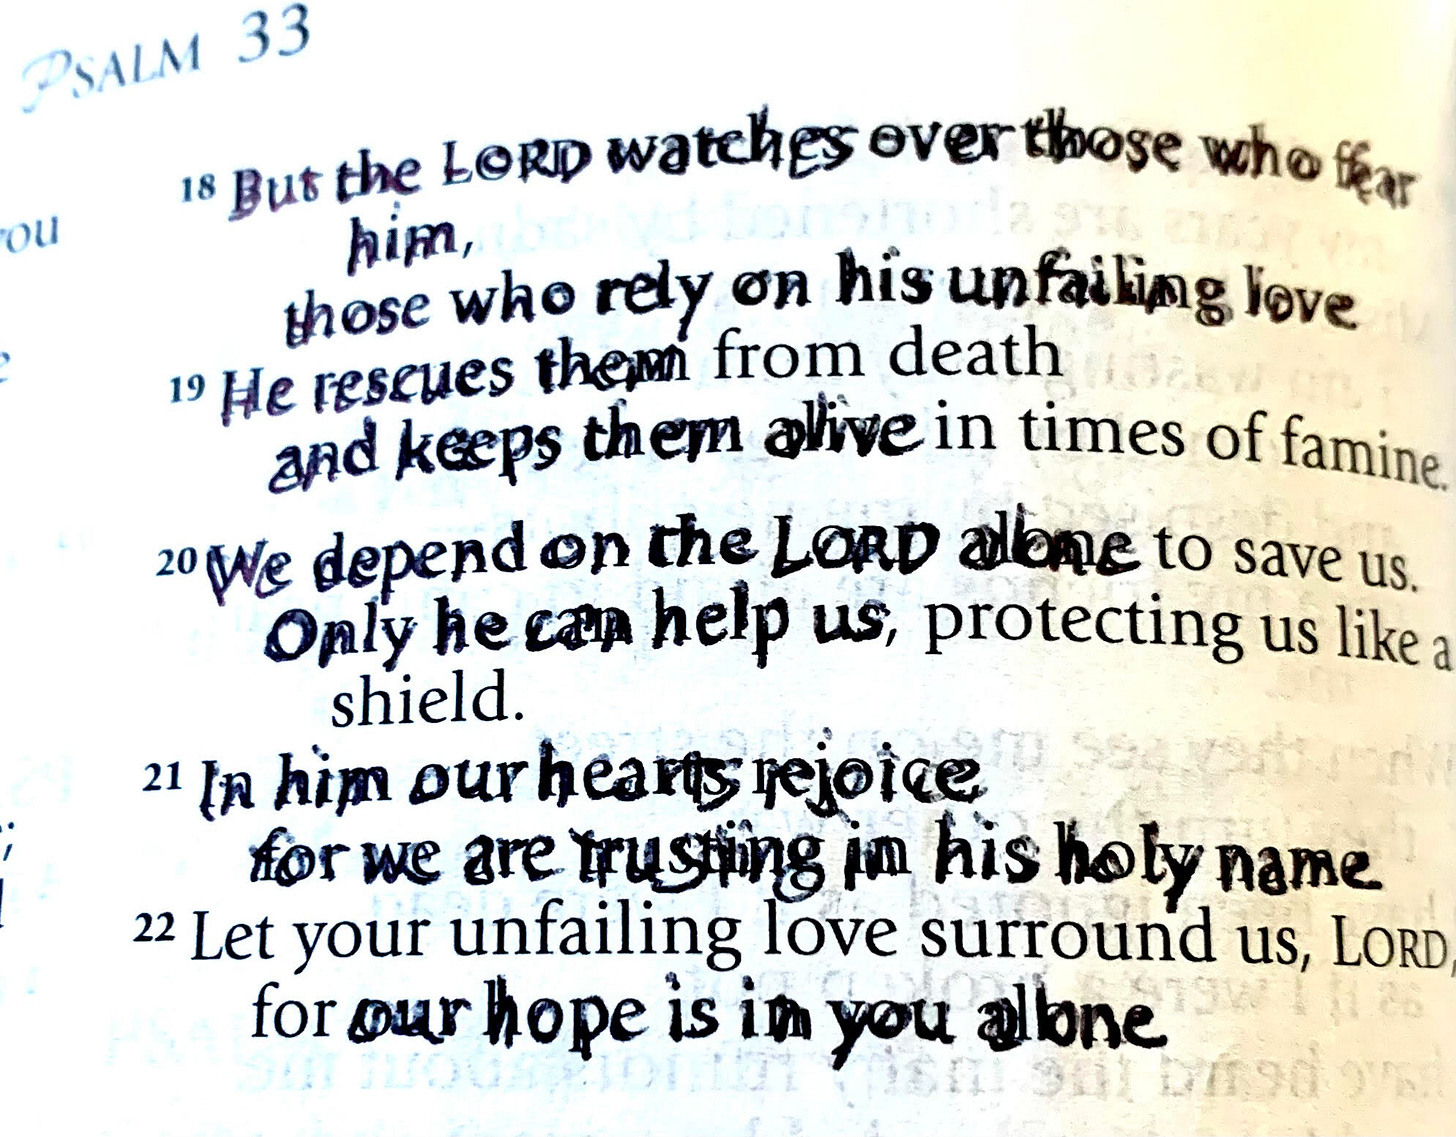 PSALM 33
18 But the LORD watches over those who fear
him,
those who rely on his unfailing love
19 He rescues them from death
and keeps them alive in times of famine.
20 We depend on the LORD alone to save us.
Only he can help us, protecting us like a
shield.
21 In him our hearts rejoice
for we are trusting in his holy name
22 Let your unfailing love surround us, LORD,
for our hope is in you alone